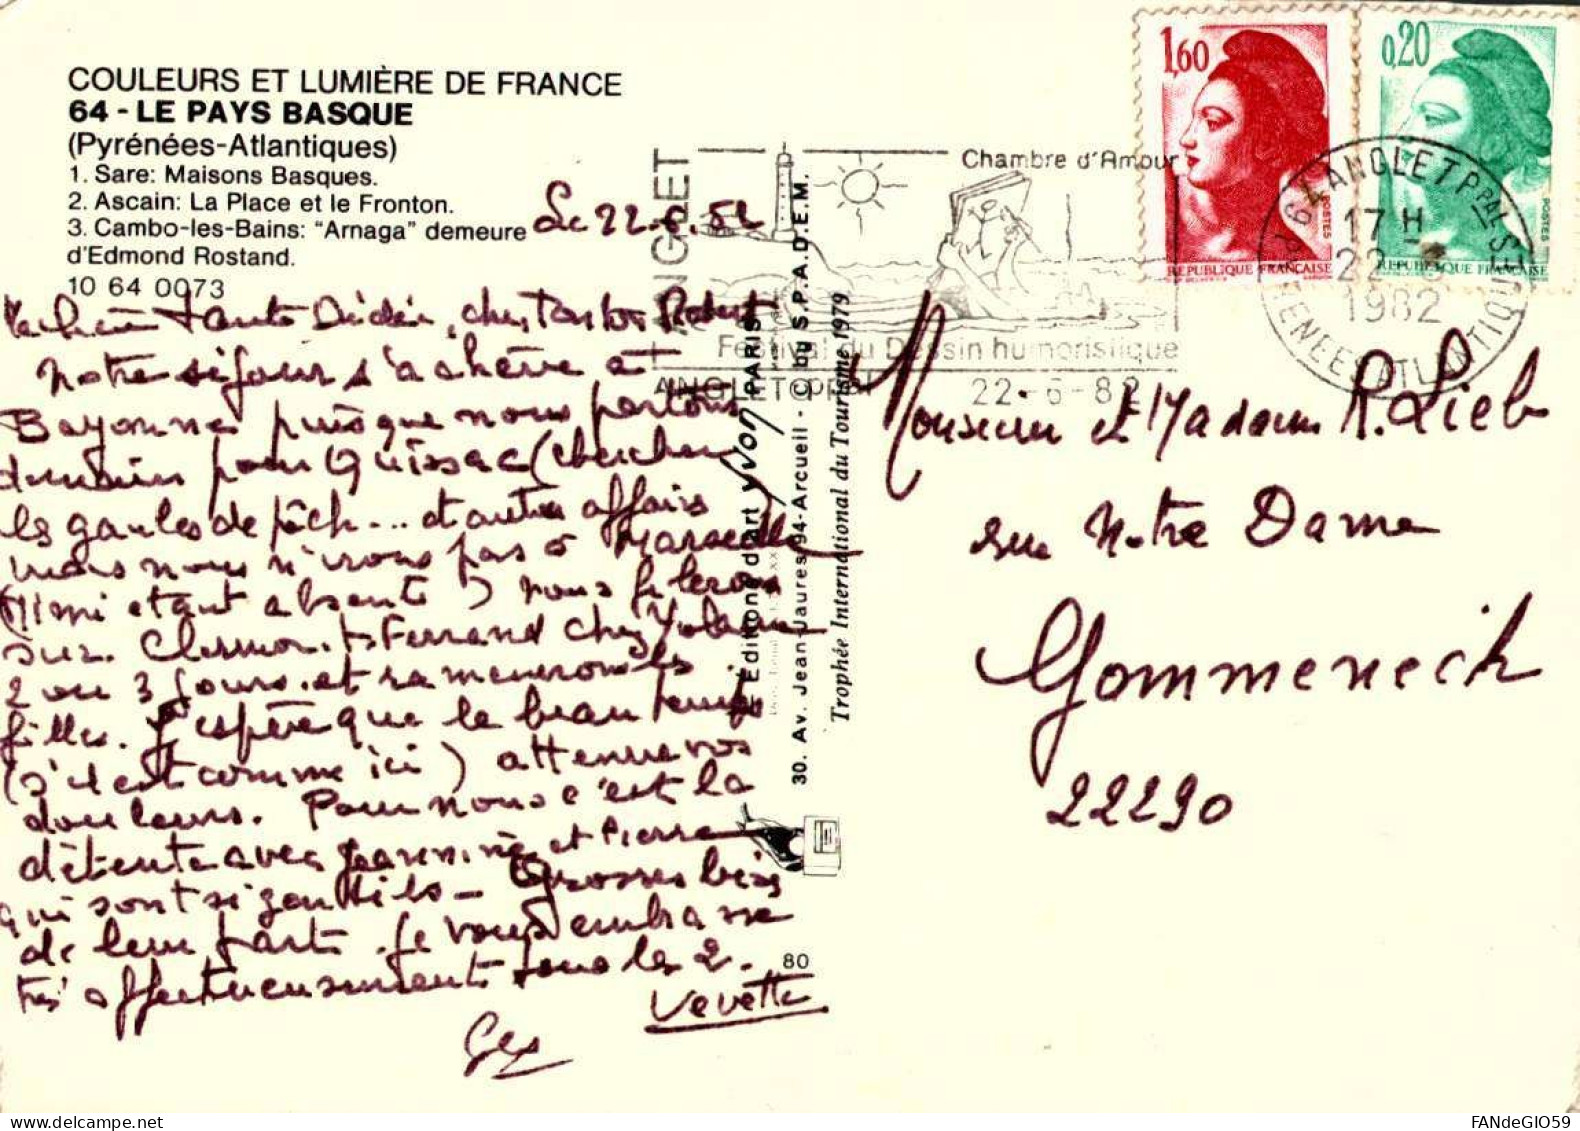 COULEURS ET LUMIÈRE DE FRANCE
64 - LE PAYS BASQUE
(Pyrénées-Atlantiques)
1. Sare: Maisons Basques.
2. Ascain: La Place et le Fronton.
3. Cambo-les-Bains: "Arnaga" demeure
d'Edmond Rostand.
10 64 0073
Le 22.6.82
Tante Dédée, cher Tonton Robert
Notre séjour s'achève à
Bayonne puisque nous partons
demain pour Quissac (chercher
les gaules de pêche... et autres affaires
mais nous n'irons pas à Marseille
(Mimi étant absente) nous filerons
sur Clermont Ferrand chez Yolaine
2 ou 3 jours et ramènerons les
filles. J'espère que le beau temps
(s'il est comme ici) atténue vos
douleurs. Pour nous c'est la
détente avec Jeannine et Pierre
qui sont si gentils - Grosses bises
de leur part. Je vous embrasse
très affectueusement tous les 2.
Vevette
ANGLET
ANGLET
Chambre d'Amour
Festival du Dessin humoristique
ANGLET PPAL
22-6-82
Editions d'art yvon PARIS
30. Av. Jean-Jaures-94-Arcueil - © by S.P.A.D.E.M.
Trophée International du Tourisme 1979
80
1,60
POSTES
REPUBLIQUE FRANÇAISE
0,20
POSTES
REPUBLIQUE FRANÇAISE
64 ANGLET PPAL
17 H
22 - 6
1982
PYRENEES ATLANTIQUES
Monsieur et Madame R. Lieb
rue Notre Dame
Gommenech
22290
FANdeGIO59